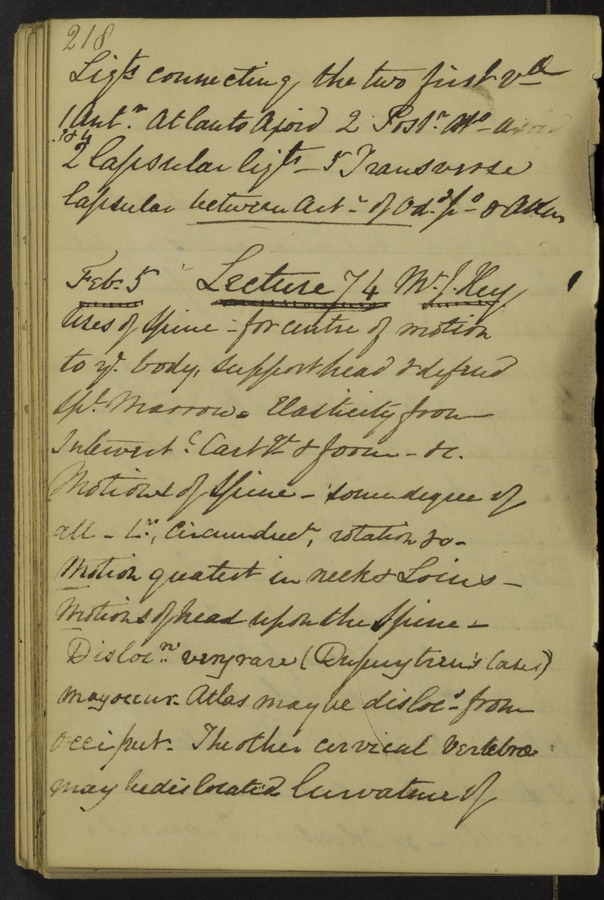 218
Ligts connecting the two first Vdl
1 Antr. Atlanto Axoid 2 Postr. Atlo- Axoid
3 & 4
2 Capsular ligts - 5 Transverse
Capsular between Art- of Od. po & Atlas
Feb. 5 Lecture 74 Mr. J. Key
Uses of Spine - for centre of motion
to ye. body, support head & defend
Spl. Marrow. Elasticity from
Intervertl Cartge & form - &c.
Motions of Spine - some degree of
all - Ln, Circumduct, rotation &c-
Motion greatest in neck & Loins -
Motions of head upon the Spine -
Disloc.ns very rare (Dupuytren's Cases)
may occur. Atlas may be disloc.d from
occiput - The other cervical vertebrae
may be dislocated Curvature of